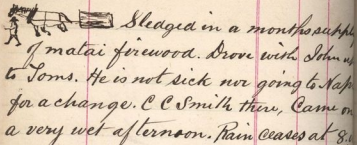 Sledged in a months supply
of matai firewood. Drove with John up
to Toms. He is not sick nor going to Nap
for a change. C C Smith there, Came on
a very wet afternoon. Rain ceases at 8.